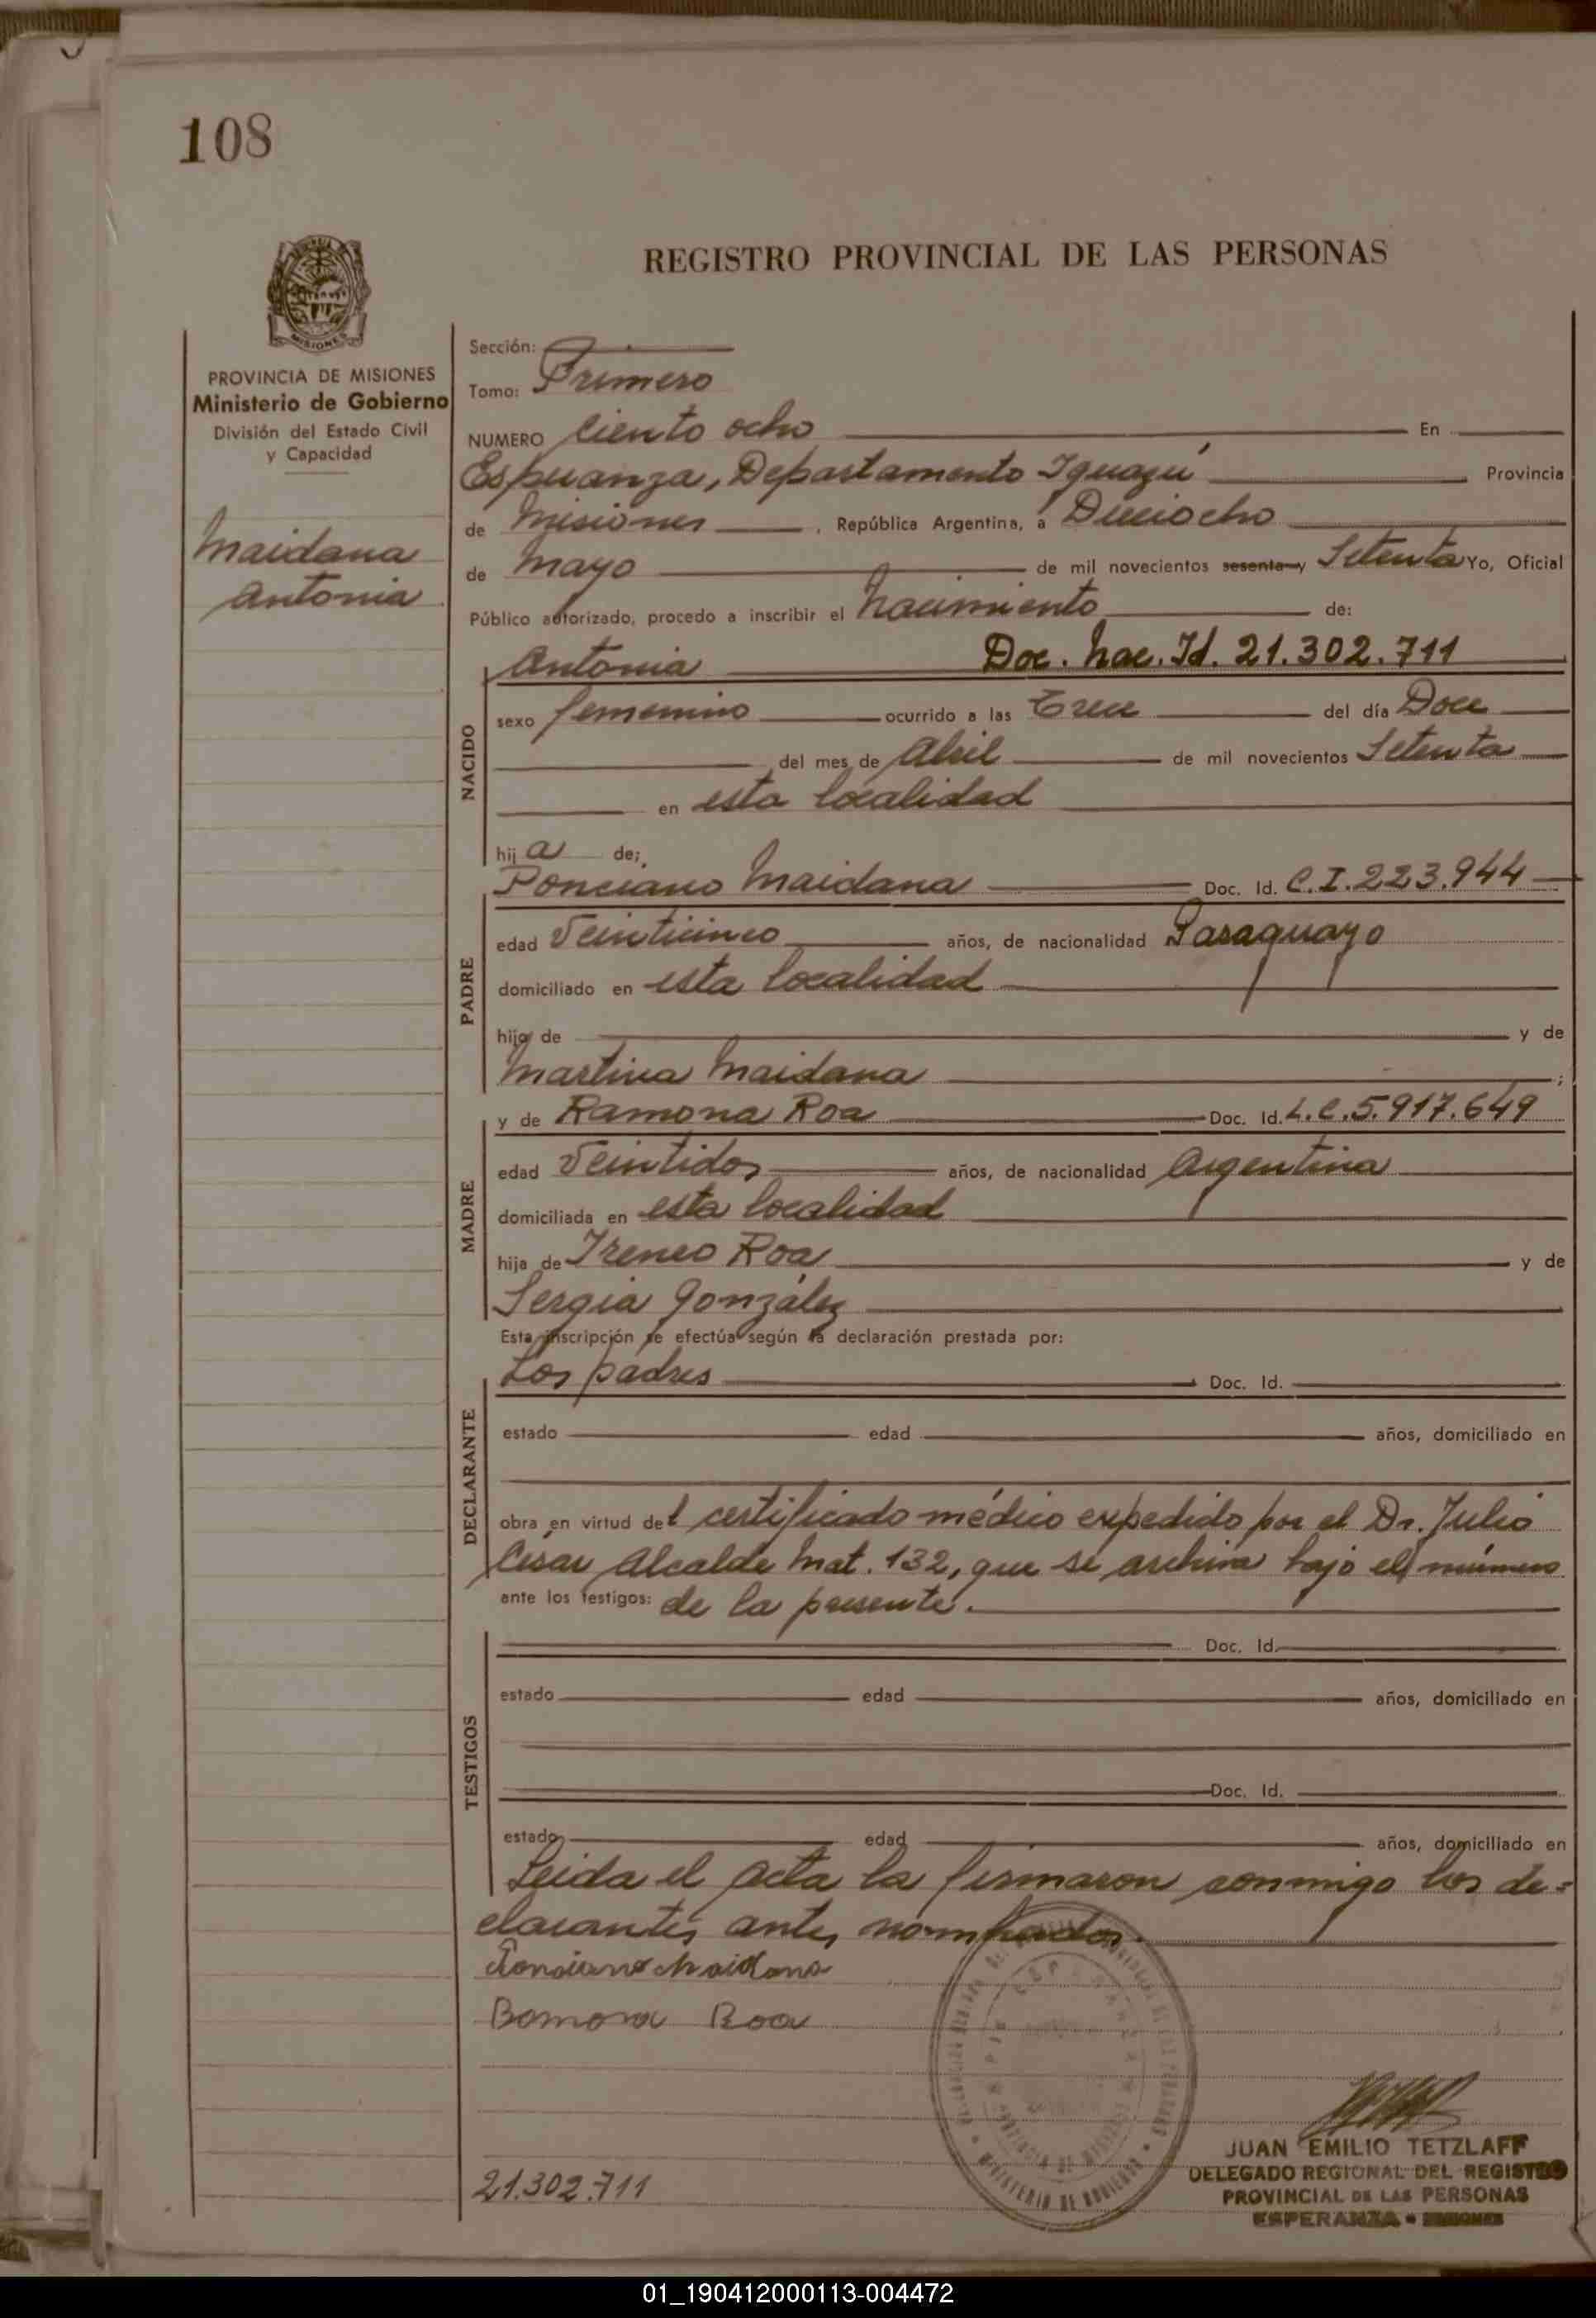 108
REGISTRO PROVINCIAL DE LAS PERSONAS
MISIONES
PROVINCIA DE MISIONES
Ministerio de Gobierno
División del Estado Civil
y Capacidad
Maidana
Antonia
Sección:
Tomo: Primero
NUMERO Ciento ocho En
Esperanza, Departamento Iguazú Provincia
de Misiones , República Argentina, a Dieciocho
de Mayo de mil novecientos sesenta y Setenta Yo, Oficial
Público autorizado, procedo a inscribir el Nacimiento de:
Antonia Doc. Nac. Id. 21.302.711
NACIDO
sexo femenino ocurrido a las Trece del día Doce
del mes de Abril de mil novecientos Setenta
en esta localidad
hij a de;
Ponciano Maidana Doc. Id. C.I. 223.944
PADRE
edad Veinticinco años, de nacionalidad Paraguayo
domiciliado en esta localidad
hijo de y de
Martina Maidana ;
y de Ramona Roa Doc. Id. L.C. 5.917.649
MADRE
edad Veintidos años, de nacionalidad Argentina
domiciliada en esta localidad
hija de Ireneo Roa y de
Sergia González
Esta inscripción se efectúa según la declaración prestada por:
Los padres Doc. Id.
DECLARANTE
estado edad años, domiciliado en
obra en virtud del certificado médico expedido por el Dr. Julio
César Alcalde Mat. 132, que se archiva bajo el número
ante los testigos: de la presente.
Doc. Id.
TESTIGOS
estado edad años, domiciliado en
Doc. Id.
estado edad años, domiciliado en
Leida el acta la firmaron conmigo los de=
clarantes antes nombrados.
Ponciano Maidana
Ramona Roa
JUAN EMILIO TETZLAFF
DELEGADO REGIONAL DEL REGISTRO
PROVINCIAL DE LAS PERSONAS
ESPERANZA - MISIONES
21.302.711
01_190412000113-004472